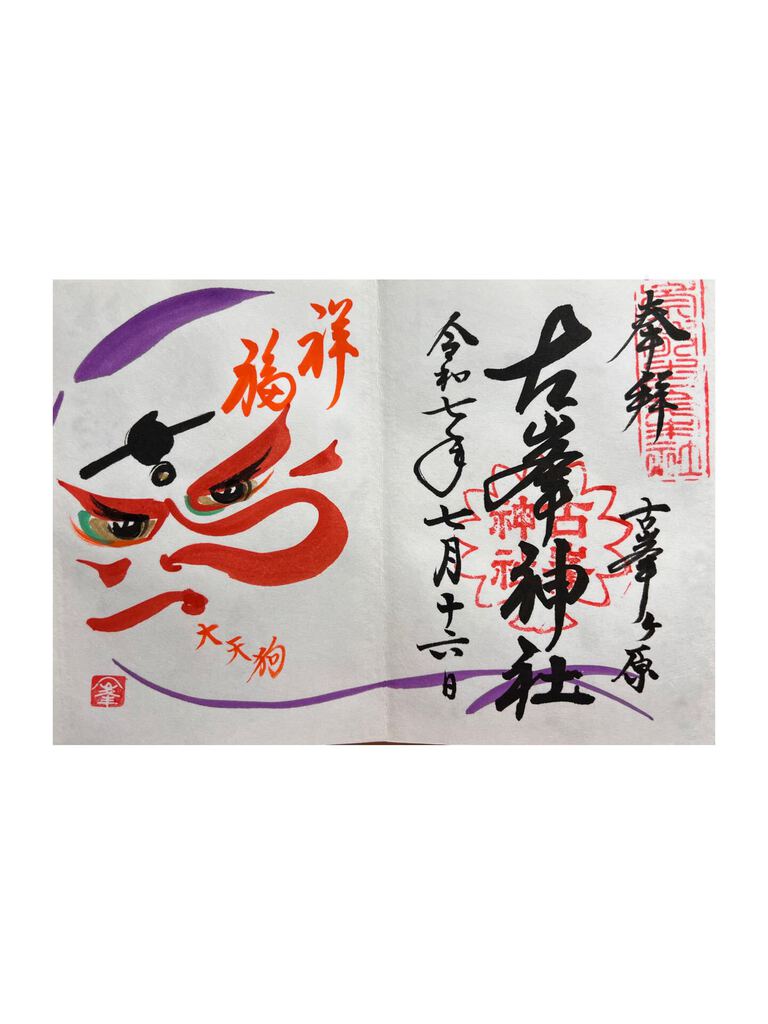 奉拝
古峯ヶ原
古峯神社
古峯神社
令和七年七月十六日
祥福
大天狗
峯